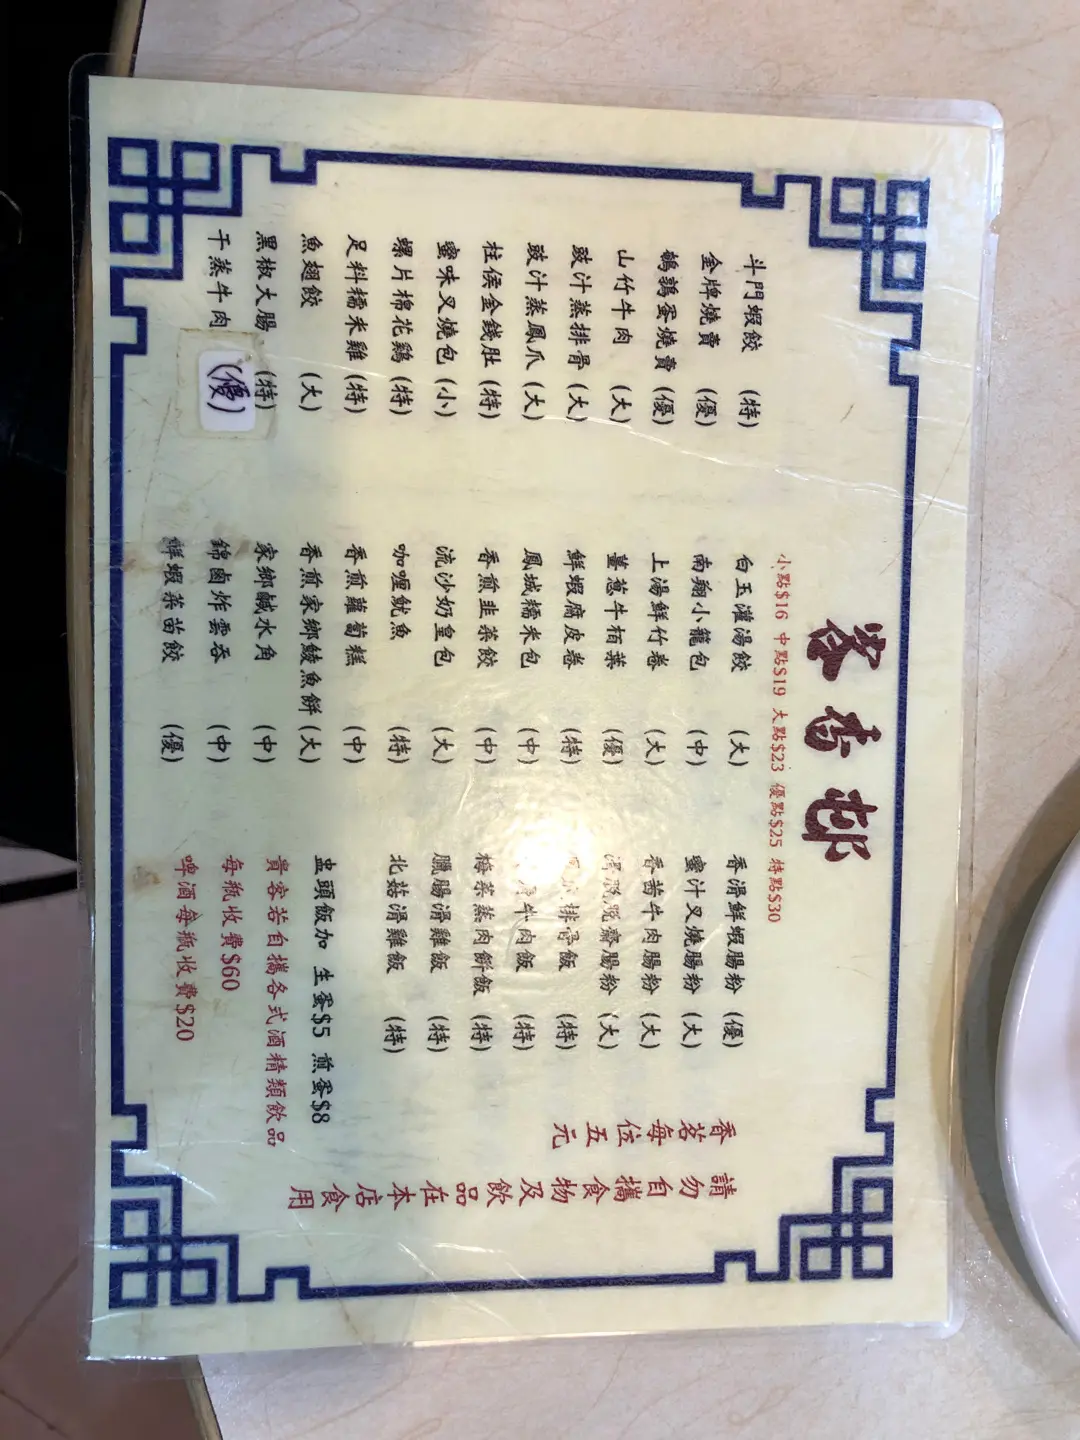 客香邨
小點$16 中點$19 大點$23 優點$25 特點$30
斗門蝦餃 (特)
金牌燒賣 (優)
鵪鶉蛋燒賣 (優)
山竹牛肉 (大)
豉汁蒸排骨 (大)
豉汁蒸鳳爪 (大)
柱侯金錢肚 (特)
蜜味叉燒包 (小)
螺片棉花鷄 (特)
足料糯米雞 (特)
魚翅餃 (大)
黑椒大腸 (特)
干蒸牛肉 (優)
白玉灌湯餃 (大)
南翔小籠包 (中)
上湯鮮竹卷 (大)
薑蔥牛栢葉 (優)
鮮蝦腐皮卷 (特)
鳳城糯米包 (中)
香煎韭菜餃 (中)
流沙奶皇包 (大)
咖喱魷魚 (特)
香煎蘿蔔糕 (中)
香煎家鄉鯪魚餅 (大)
家鄉鹹水角 (中)
錦鹵炸雲吞 (中)
鮮蝦菜苗餃 (優)
香滑鮮蝦腸粉 (優)
蜜汁叉燒腸粉 (大)
香茜牛肉腸粉 (大)
滑齋腸粉 (大)
排骨飯 (特)
牛肉飯 (特)
梅菜蒸肉餅飯 (特)
臘腸滑雞飯 (特)
北菇滑雞飯 (特)
盅頭飯加 生蛋$5 煎蛋$8
貴客若自攜各式酒精類飲品
每瓶收費$60
啤酒每瓶收費$20
香茗每位五元
請勿自攜食物及飲品在本店食用